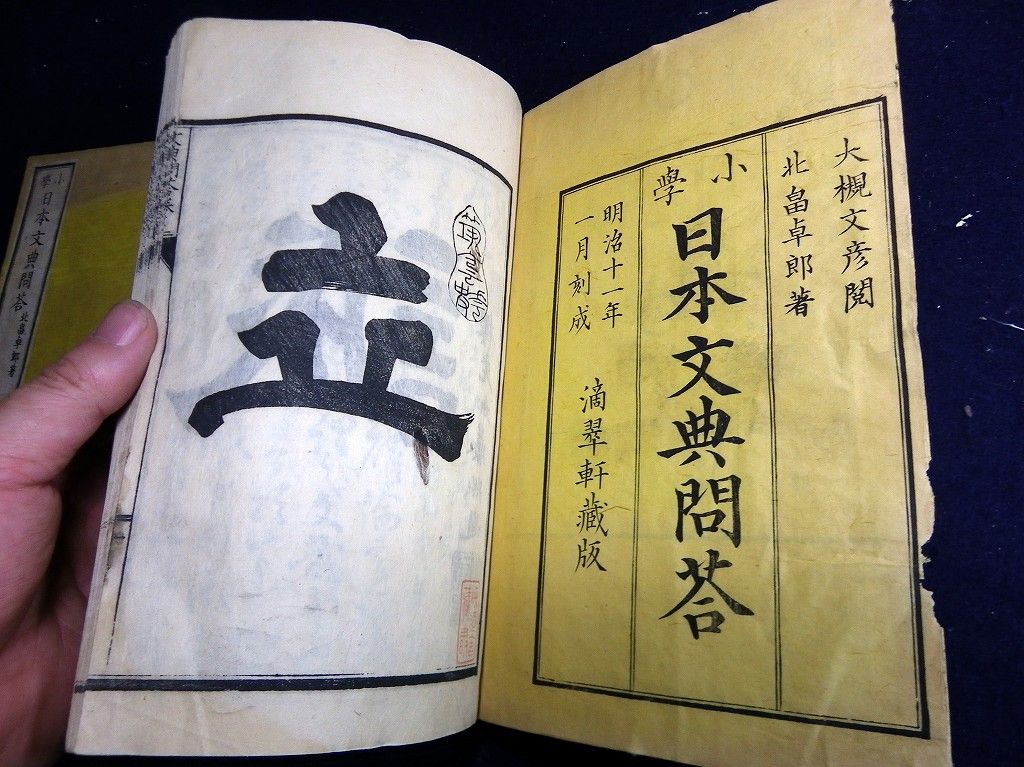 大槻文彦閲
北畠卓郎著
小學
日本文典問答
明治十一年
一月刻成
滴翠軒藏版
小學
日本文典問答
北畠卓郎著